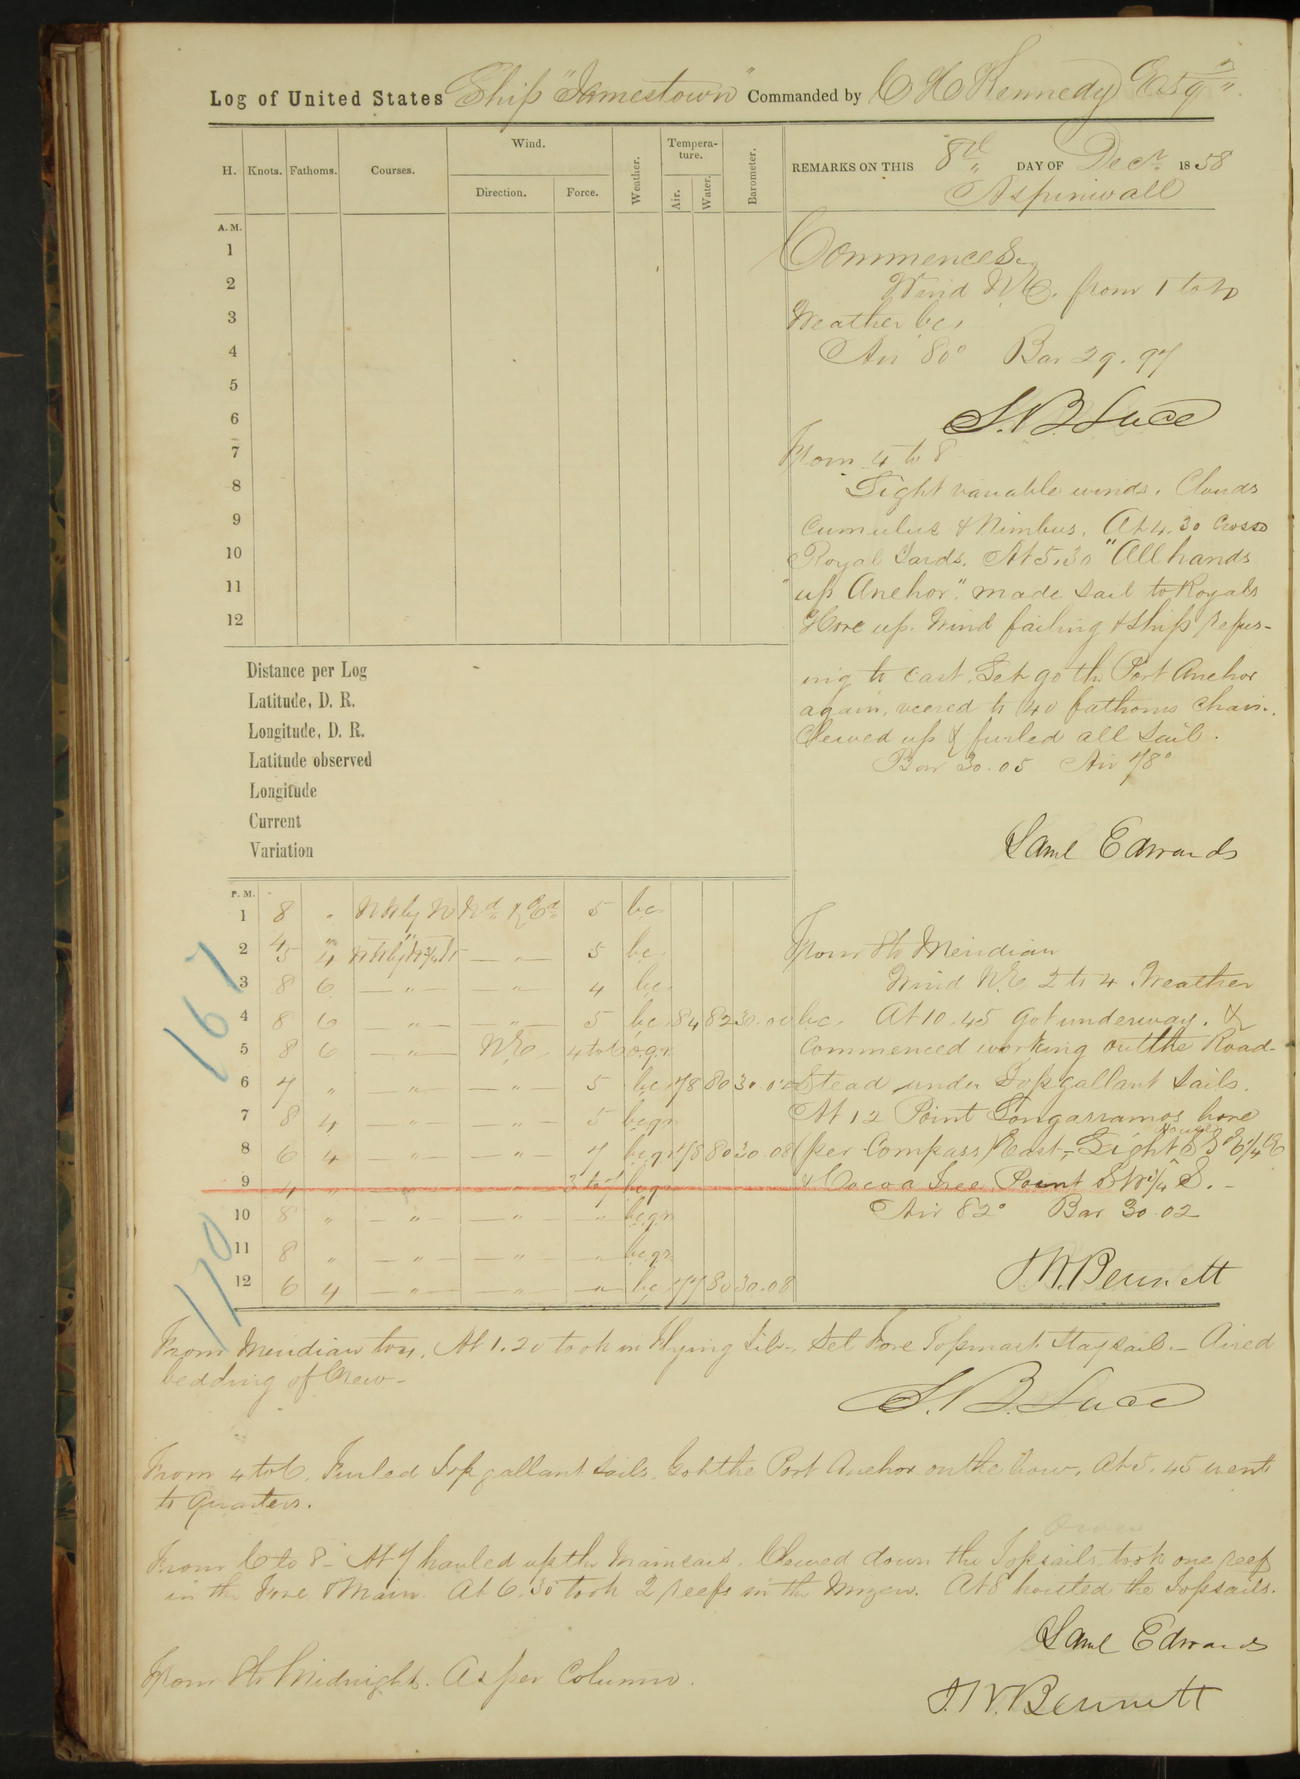 Log of United States Ship "Jamestown" Commanded by C H Kennedy Esqr.
H. Knots. Fathoms. Courses. Wind. Direction. Force. Weather. Tempera-ture. Air. Water. Barometer.
REMARKS ON THIS 8th DAY OF Decr. 1858
Aspinwall
A. M.
1
2
3
4
5
6
7
8
9
10
11
12
Commences.
Wind N.E. from 1 to
Weather bc,
Air 80° Bar 29.97
S. B. Luce
From 4 to 8
Light variable winds. Clouds
Cumulus & Nimbus. At 4.30 Crossd
Royal Yards. At 5.30 "All hands
"up Anchor". made sail to Royals
Hove up. Wind failing & Ship refus-
ing to cast. Let go the Port Anchor
again, veered to 40 fathoms chain.
Clewed up & furled all sail.
Bar 30.05 Air 78°
Saml Edwards
Distance per Log
Latitude, D. R.
Longitude, D. R.
Latitude observed
Longitude
Current
Variation
From 8 to Meridian
Wind N.E. 2 to 4. Weather
bc. At 10.45 got underway. &
Commenced working out the Road-
stead under Topgallant sails.
At 12 Point bore
(per Compass) East, Light House S
& Cocoa Tree Point S.W 1/4 S.
Air 82° Bar 30.02
J. W. Bennett
P. M.
1 8 " 5 bc
2 4 5 — " — 5 bc
3 8 6 — " — — " — 4 bc
4 8 6 — " — — " — 5 bc 84 82 30.00
5 8 6 — " — N.E. 4 to 6 o.q.r.
6 7 " — " — — " — 5 bc 78 80 30.02
7 8 4 — " — — " — 5 bcqr
8 6 4 — " — — " — 7 bcqr 78 80 30.08
9 4 " — " — — " — bcqr
10 8 " — " — — " — — " — bcqr
11 8 " — " — — " — " bcqr
12 6 4 — " — — " — — " — bc 77 80 30.08
167
170
From Meridian to 4. At 1.20 took in Flying Jib. Set Fore Topmast Staysail. - Aired
bedding of Crew -
S. B. Luce
From 4 to 6. Furled Topgallant sails. Got the Port Anchor on the bow. At 5.45 went
to Quarters.
From 6 to 8 - At 7 hauled up the Mainsail. Clewed down the Topsails, took one reef
in the Fore & Main. At 6.30 took 2 reefs in the Mizen. At 8 hoisted the Topsails.
Saml Edwards
From 8 to Midnight. As per Columns.
J. W. Bennett